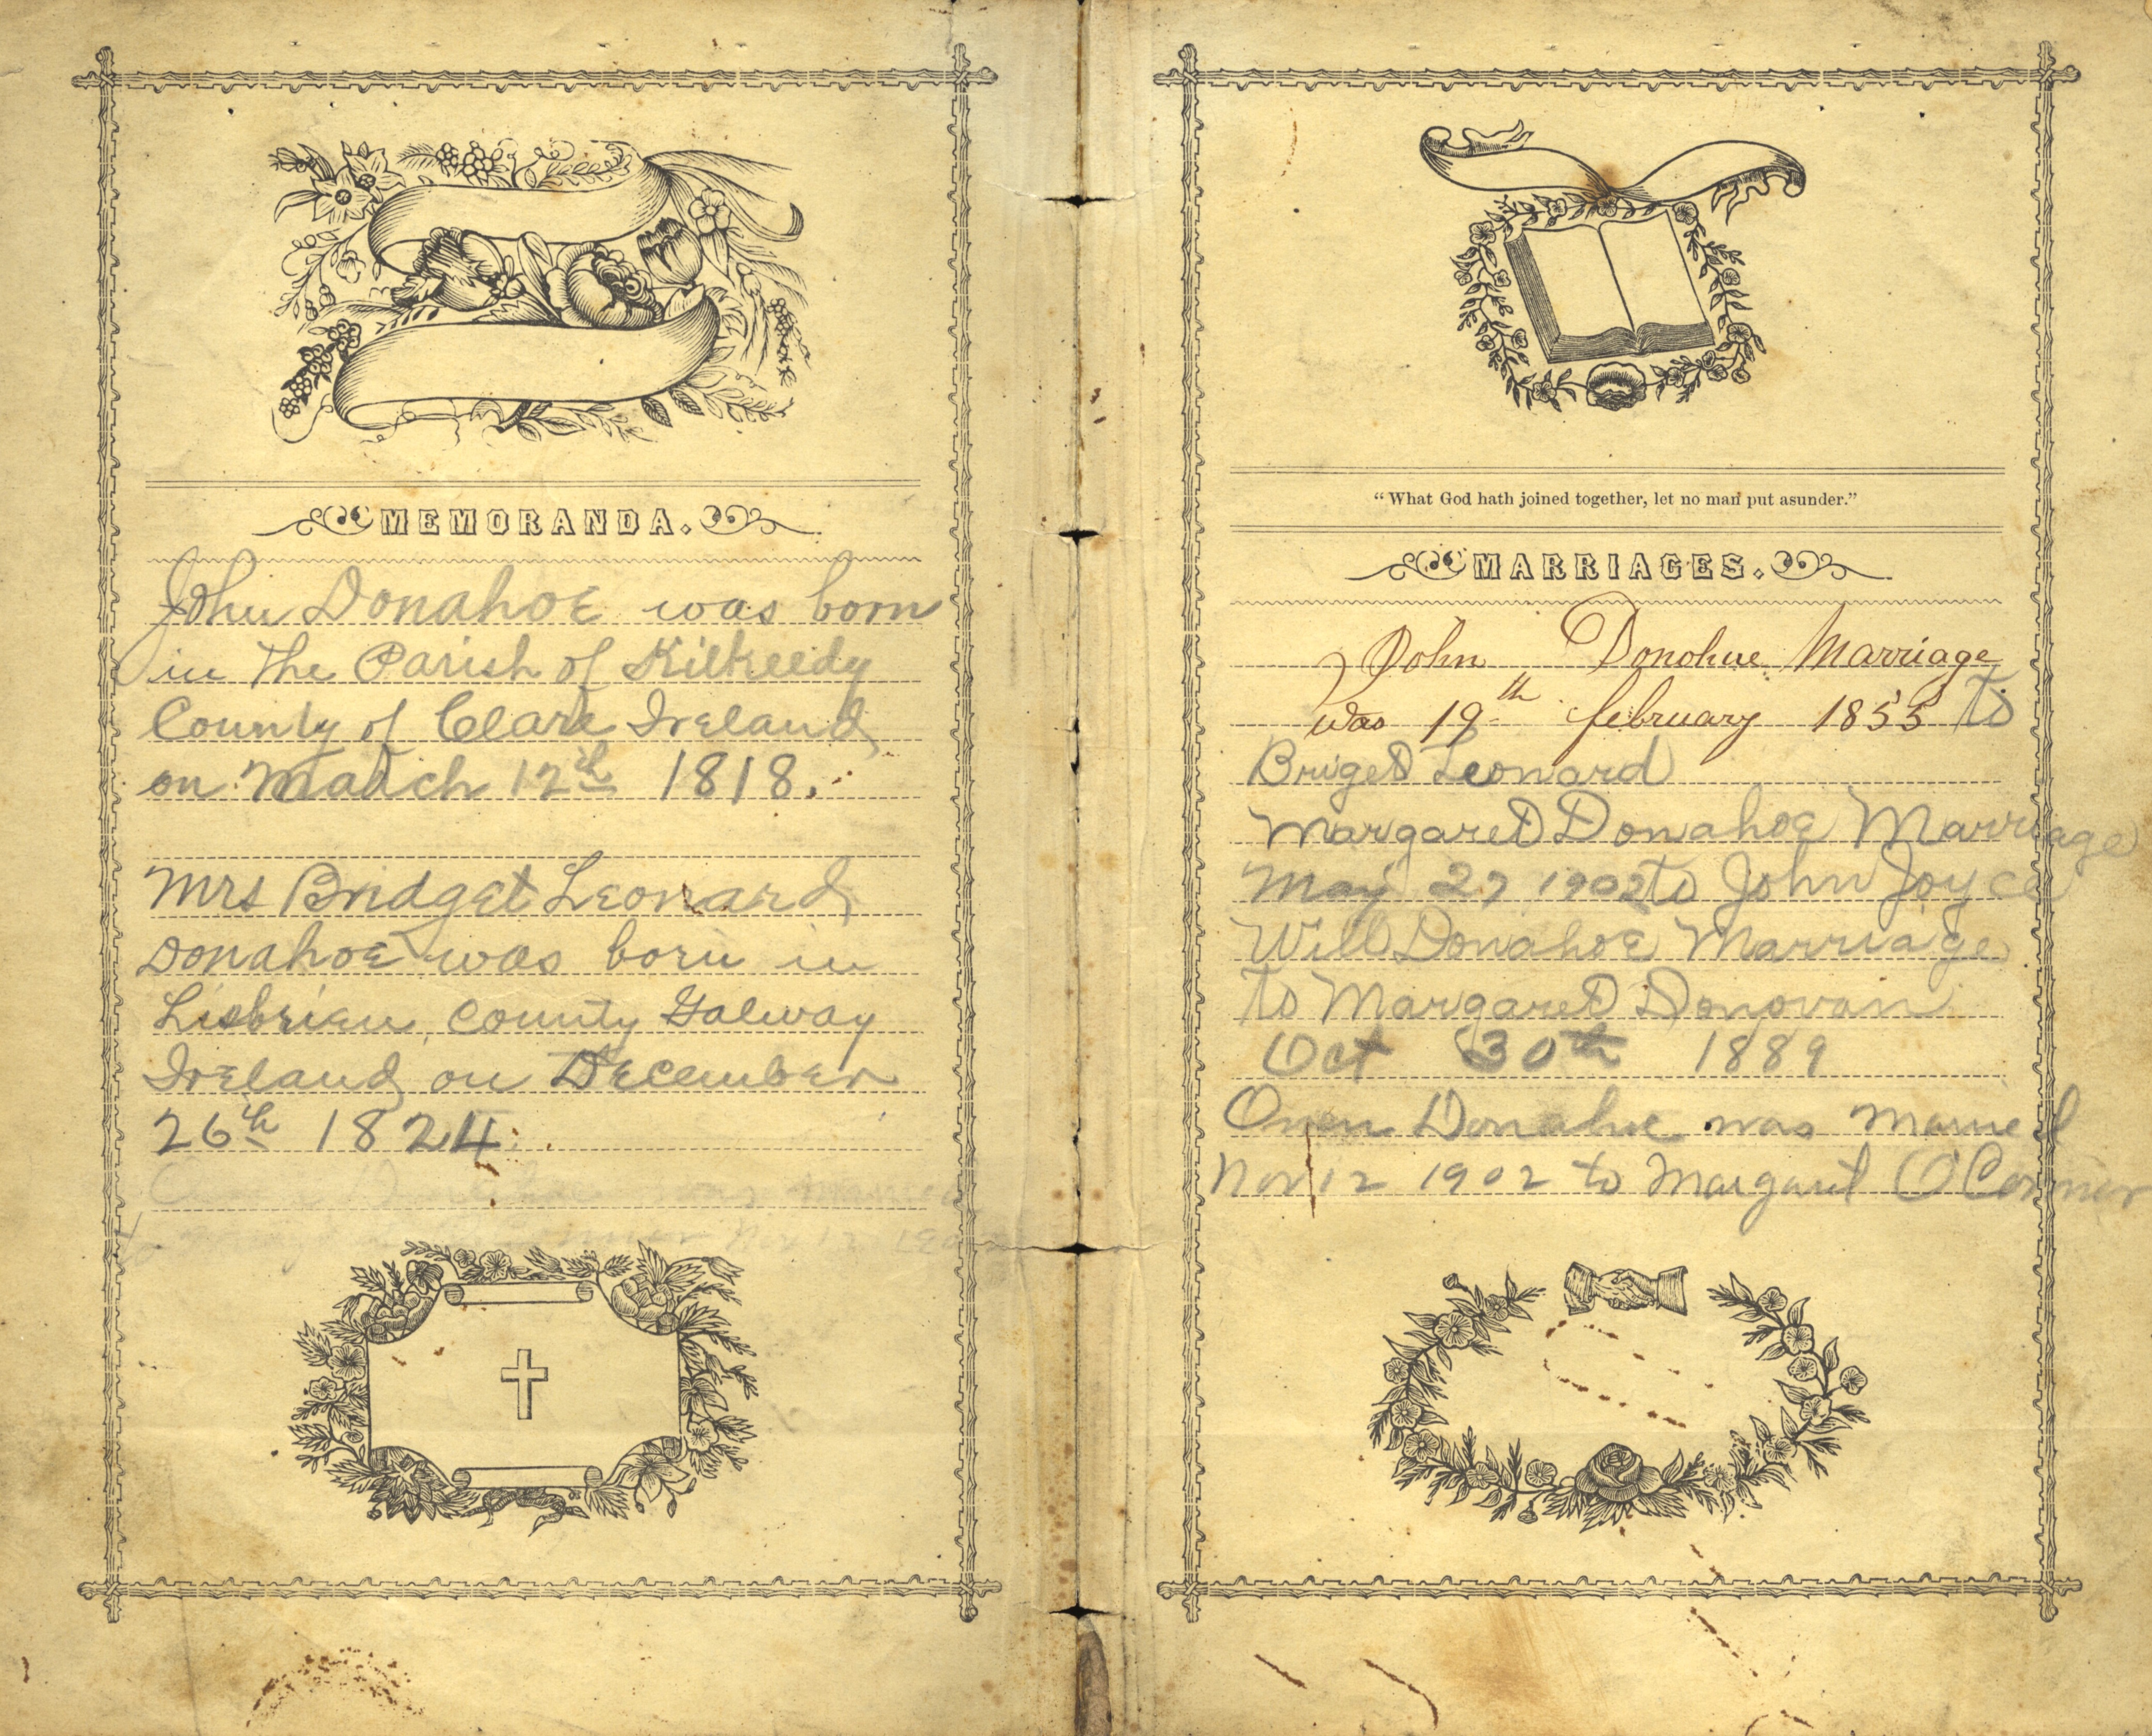 MEMORANDA.
John Donahoe was born
in the Parish of Kilkeedy
County of Clare Ireland
on March 12th 1818.
Mrs Bridget Leonard
Donahoe was born in
Lisbrien, County Galway
Ireland on December
26th 1824.
was married
to Nov 12
"What God hath joined together, let no man put asunder."
MARRIAGES.
John Donohue Marriage
was 19th february 1855 to
Briget Leonard
Margaret Donahoe Marriage
May 27 1902 to John Joyce
Will Donahoe Marriage
to Margaret Donovan
Oct 30th 1889
Owen Donahue was married
Nov 12 1902 to Margaret O'Connor